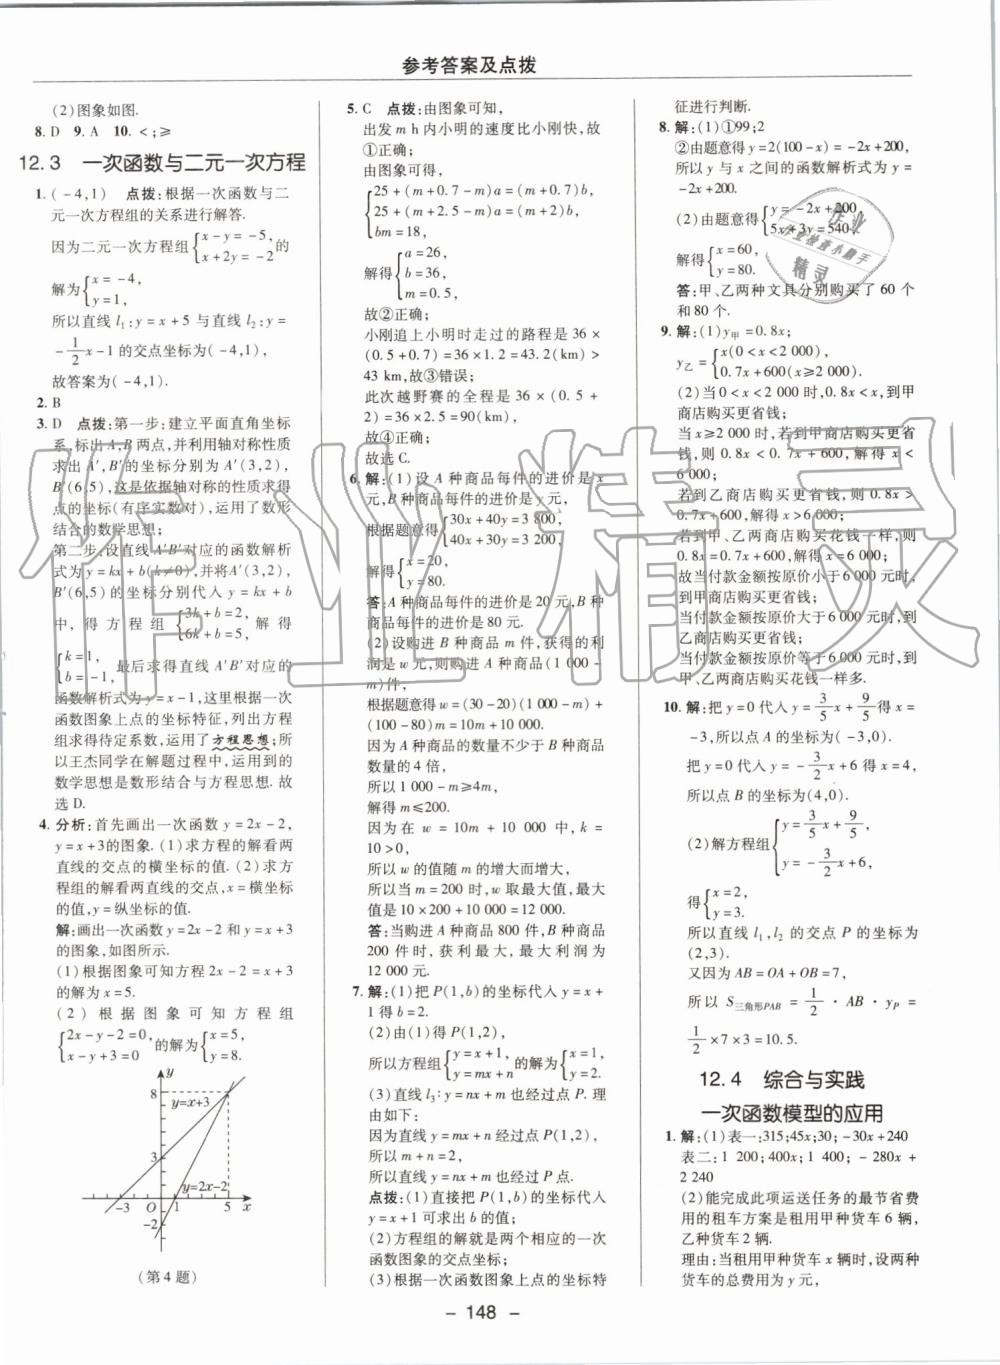 参考答案及点拨
(2)图象如图.
8. D  9. A  10. <;≥
12.3 一次函数与二元一次方程
1. (-4,1) 点拨:根据一次函数与二
元一次方程组的关系进行解答.
因为二元一次方程组{x-y=-5, x+2y=-2的
解为{x=-4, y=1,
所以直线 l₁:y=x+5 与直线 l₂:y=
-1/2x-1的交点坐标为(-4,1),
故答案为(-4,1).
2. B
3. D 点拨:第一步:建立平面直角坐标
系,标出A,B两点,并利用轴对称性质
求出 A′,B′的坐标分别为 A′(3,2),
B′(6,5),这是依据轴对称的性质求得
点的坐标(有序实数对),运用了数形
结合的数学思想;
第二步:设直线A′B′对应的函数解析
式为y=kx+b(k≠0),并将A′(3,2),
B′(6,5)的坐标分别代入 y=kx+b
中,得方程组{3k+b=2, 6k+b=5,解得
{k=1, b=-1,最后求得直线A′B′对应的
函数解析式为y=x-1,这里根据一次
函数图象上点的坐标特征,列出方程
组求得待定系数,运用了方程思想;所
以王杰同学在解题过程中,运用到的
数学思想是数形结合与方程思想.故
选 D.
4. 分析:首先画出一次函数 y=2x-2,
y=x+3的图象.(1)求方程的解看两
直线的交点的横坐标的值.(2)求方
程组的解看两直线的交点,x=横坐标
的值,y=纵坐标的值.
解:画出一次函数y=2x-2和y=x+3
的图象,如图所示.
(1)根据图象可知方程 2x-2=x+3
的解为x=5.
(2)根据图象可知方程组
{2x-y-2=0, x-y+3=0的解为{x=5, y=8.
y
8
y=x+3
3
y=2x-2
-3 O 1 5 x
-2
(第4题)
5. C 点拨:由图象可知,
出发 m h内小明的速度比小刚快,故
①正确;
由图象可得,
{25+(m+0.7-m)a=(m+0.7)b,
25+(m+2.5-m)a=(m+2)b,
bm=18,
解得{a=26, b=36, m=0.5,
故②正确;
小刚追上小明时走过的路程是 36×
(0.5+0.7)=36×1.2=43.2(km)>
43 km,故③错误;
此次越野赛的全程是 36×(0.5+
2)=36×2.5=90(km),
故④正确.
故选 C.
6. 解:(1)设 A 种商品每件的进价是 x
元,B种商品每件的进价是 y元,
根据题意得{30x+40y=3 800, 40x+30y=3 200,
解得{x=20, y=80.
答:A种商品每件的进价是20元,B种
商品每件的进价是80元.
(2)设购进 B 种商品 m 件,获得的利
润是w元,则购进 A 种商品(1 000-
m)件,
根据题意得w=(30-20)(1 000-m)+
(100-80)m=10m+10 000.
因为 A 种商品的数量不少于 B 种商品
数量的 4 倍,
所以 1 000-m≥4m,
解得 m≤200.
因为在 w=10m+10 000 中,k=
10>0,
所以w的值随 m 的增大而增大,
所以当 m=200 时,w 取最大值,最大
值是 10×200+10 000=12 000.
答:当购进 A 种商品 800 件,B种商品
200 件时,获利最大,最大利润为
12 000元.
7. 解:(1)把 P(1,b)的坐标代入 y=x+
1得b=2.
(2)由(1)得 P(1,2),
所以方程组{y=x+1, y=mx+n的解为{x=1, y=2.
(3)直线 l₃:y=nx+m 也经过点 P.理
由如下:
因为直线 y=mx+n 经过点 P(1,2),
所以 m+n=2,
所以直线 y=nx+m 也经过 P 点.
点拨:(1)直接把 P(1,b)的坐标代入
y=x+1 可求出 b;
(2)方程组的解就是两个相应的一次
函数图象的交点坐标;
(3)根据一次函数图象上点的坐标特
征进行判断.
8. 解:(1)①99;2
②由题意得y=2(100-x)=-2x+200,
所以 y 与 x 之间的函数解析式为 y=
-2x+200.
(2)由题意得{y=-2x+200, 5x+3y=540,
解得{x=60, y=80.
答:甲、乙两种文具分别购买了 60 个
和80 个.
9. 解:(1)y甲=0.8x;
y乙={x(0<x<2 000), 0.7x+600(x≥2 000).
(2)当0<x<2 000时,0.8x<x,到甲
商店购买更省钱;
当x≥2 000时,若到甲商店购买更省
钱,则 0.8x<0.7x+600,解得 x<
6 000;
若到乙商店购买更省钱,则 0.8x>
0.7x+600,解得 x>6 000;
若到甲、乙商店购买花钱一样,则
0.8x=0.7x+600,解得x=6 000;
故当付款金额按原价小于6 000元时,
到甲商店购买更省钱;
当付款金额按原价大于6 000元时,到
乙商店购买更省钱;
当付款金额按原价等于6 000元时,到
甲、乙两商店购买花钱一样多.
10. 解:把 y=0 代入 y=3/5x+9/5得 x=
-3,所以点 A 的坐标为(-3,0).
把 y=0 代入 y=-3/2x+6 得 x=4,
所以点 B 的坐标为(4,0).
(2)解方程组{y=3/5x+9/5, y=-3/2x+6,
得{x=2, y=3.
所以直线 l₁,l₂ 的交点 P 的坐标为
(2,3).
又因为 AB=OA+OB=7,
所以 S三角形PAB=1/2·AB·yP=
1/2×7×3=10.5.
12.4 综合与实践
一次函数模型的应用
1. 解:(1)表一:315;45x;30;-30x+240
表二:1 200;400x;1 400;-280x+
2 240
(2)能完成此项运送任务的最节省费
用的租车方案是租用甲种货车 6 辆,
乙种货车 2 辆.
理由:当租用甲种货车x辆时,设两种
货车的总费用为 y元,
- 148 -
作业精灵
作业
作业检查小助手
精灵